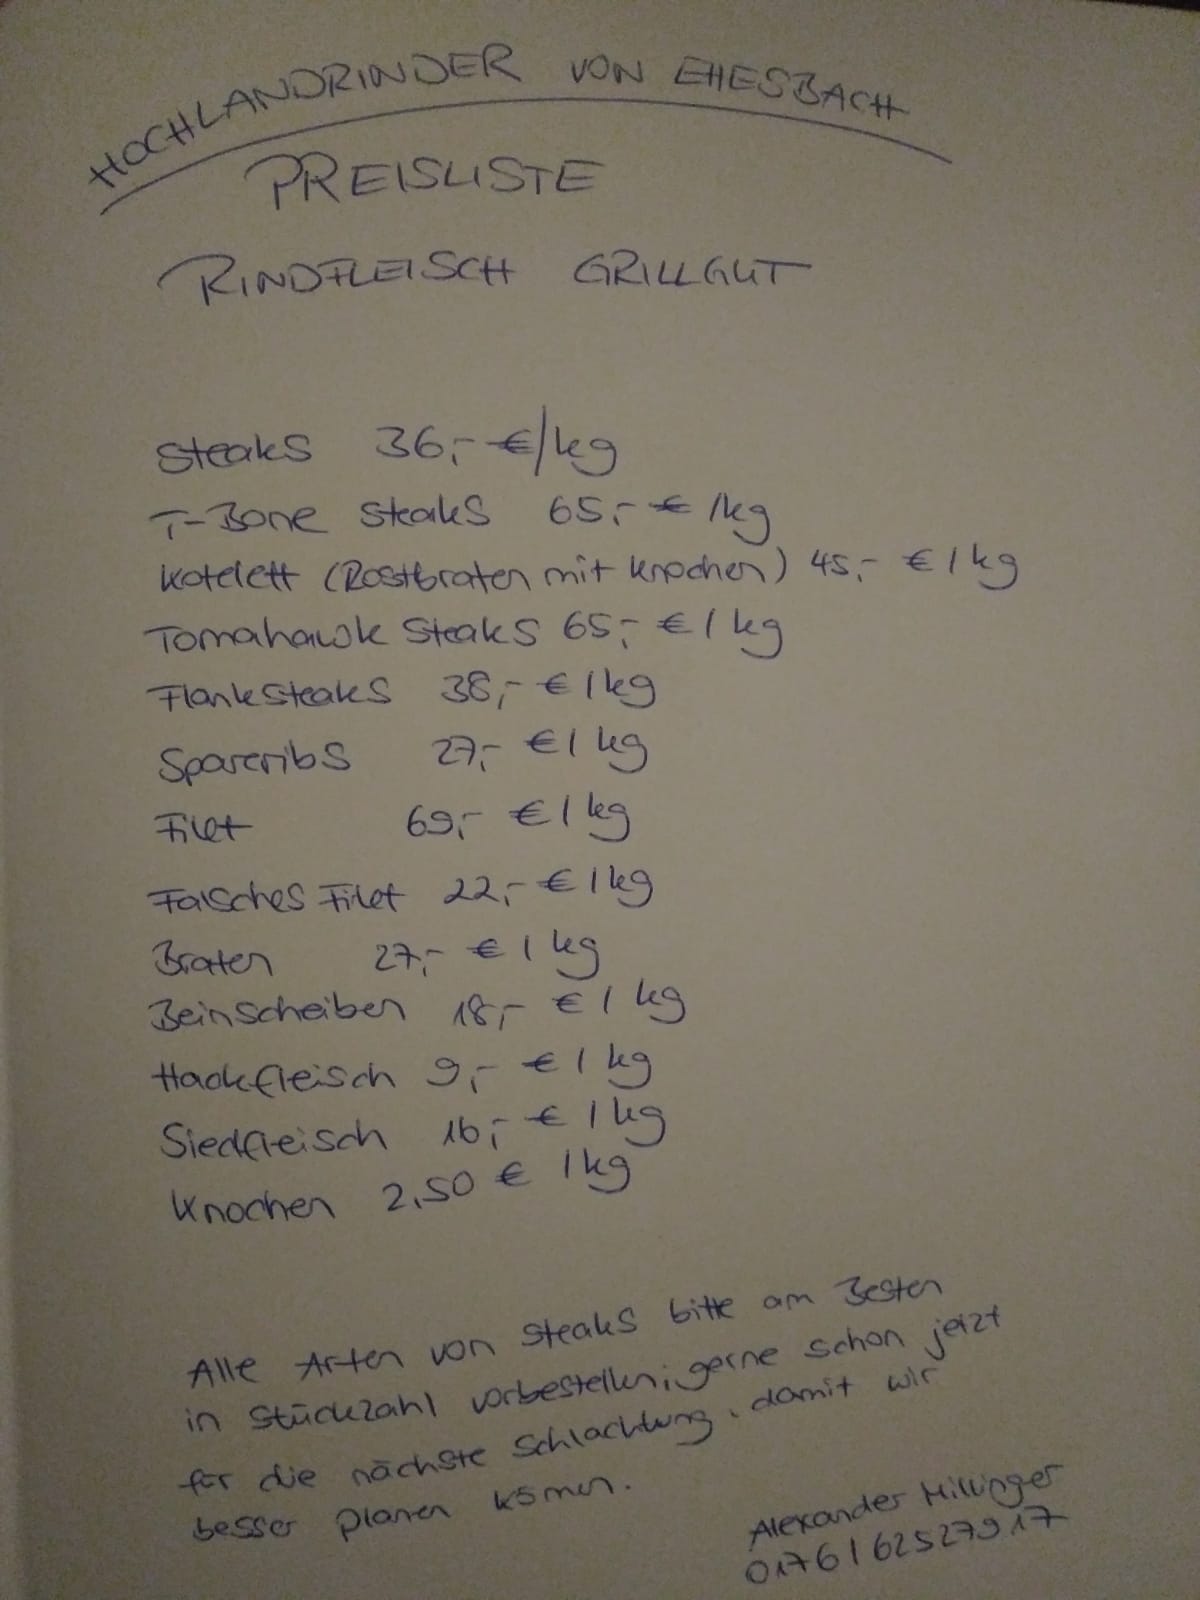 HOCHLANDRINDER VON EHESBACH
PREISLISTE
RINDFLEISCH GRILLGUT
Steaks 36,- €/kg
T-Bone Steaks 65,- €/kg
Kotelett (Rostbraten mit Knochen) 45,- €/kg
Tomahawk Steaks 65,- €/kg
Flanksteaks 38,- €/kg
Spareribs 27,- €/kg
Filet 69,- €/kg
Falsches Filet 22,- €/kg
Braten 27,- €/kg
Beinscheiben 18,- €/kg
Hackfleisch 9,- €/kg
Siedfleisch 16,- €/kg
Knochen 2,50 €/kg
Alle Arten von Steaks bitte am Besten
in Stückzahl vorbestellen, gerne schon jetzt
für die nächste Schlachtung, damit wir
besser planen können.
Alexander Millinger
0176/62527917